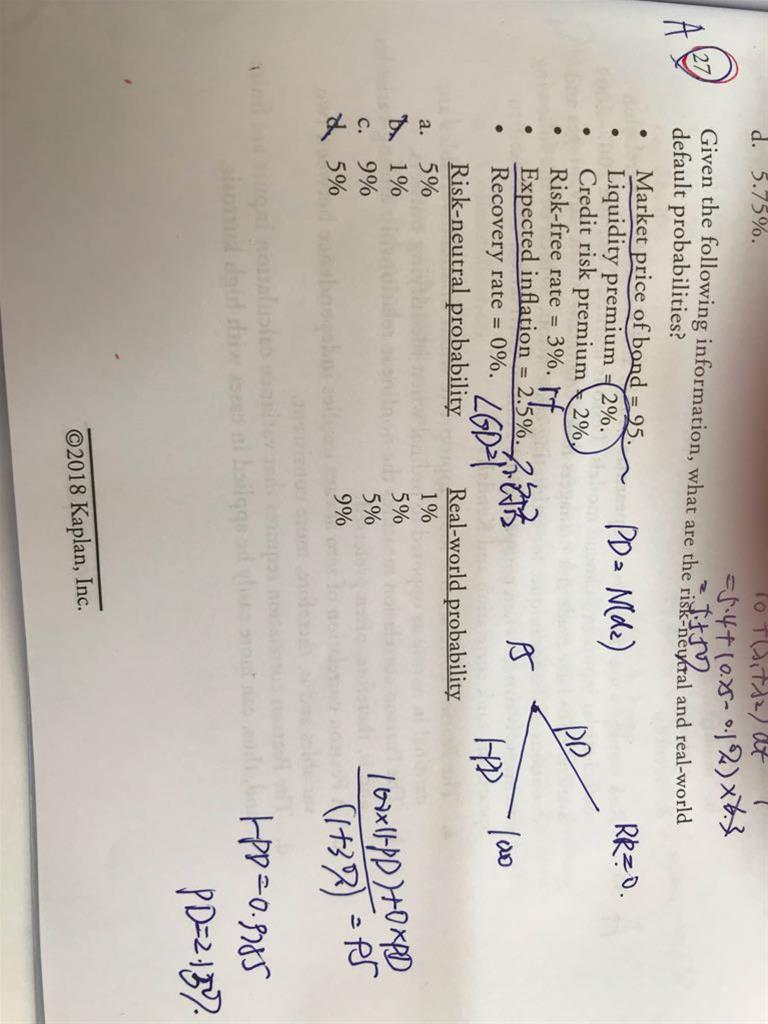 d. 5.75%.
A
27
Given the following information, what are the risk-neutral and real-world
default probabilities?
• Market price of bond = 95.
• Liquidity premium = 2%.
• Credit risk premium = 2%.
• Risk-free rate = 3%. rf
• Expected inflation = 2.5%.
• Recovery rate = 0%. LGD=1
Risk-neutral probability Real-world probability
a. 5% 1%
b. 1% 5%
c. 9% 5%
d. 5% 9%
PD= N(d2)
95
PD
1-PD
RR=0.
100
100×(1-PD)+0×PD
(1+3%) = 95
1-PD=0.9785
PD=2.15%.
©2018 Kaplan, Inc.